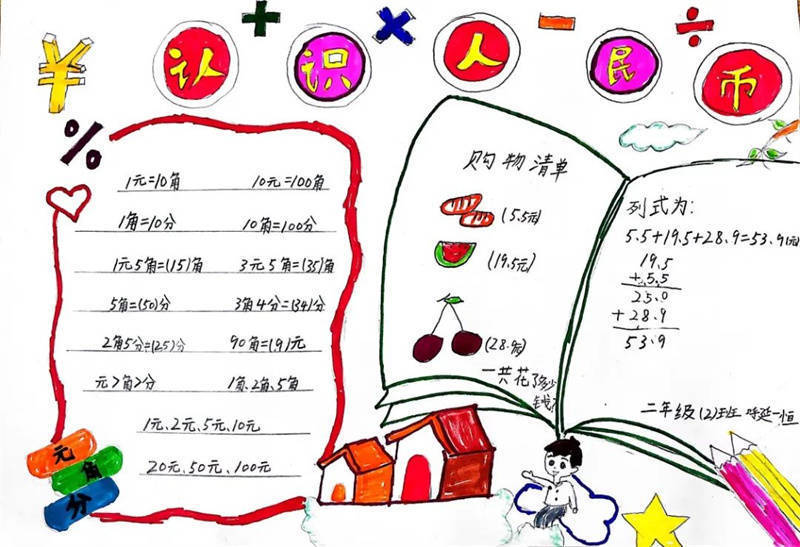 ¥ 认识人民币
%
1元=10角 10元=100角
1角=10分 10角=100分
1元5角=(15)角 3元5角=(35)角
5角=(50)分 3角4分=(34)分
2角5分=(25)分 90角=(9)元
元>角>分 1角、2角、5角
1元、2元、5元、10元
20元、50元、100元
元
角
分
购物清单
(5.5元)
(19.5元)
(28.9元)
一共花了多少
钱?
列式为:
5.5+19.5+28.9=53.9(元)
19.5
+5.5
25.0
+28.9
53.9
二年级(2)班 呼延一恒